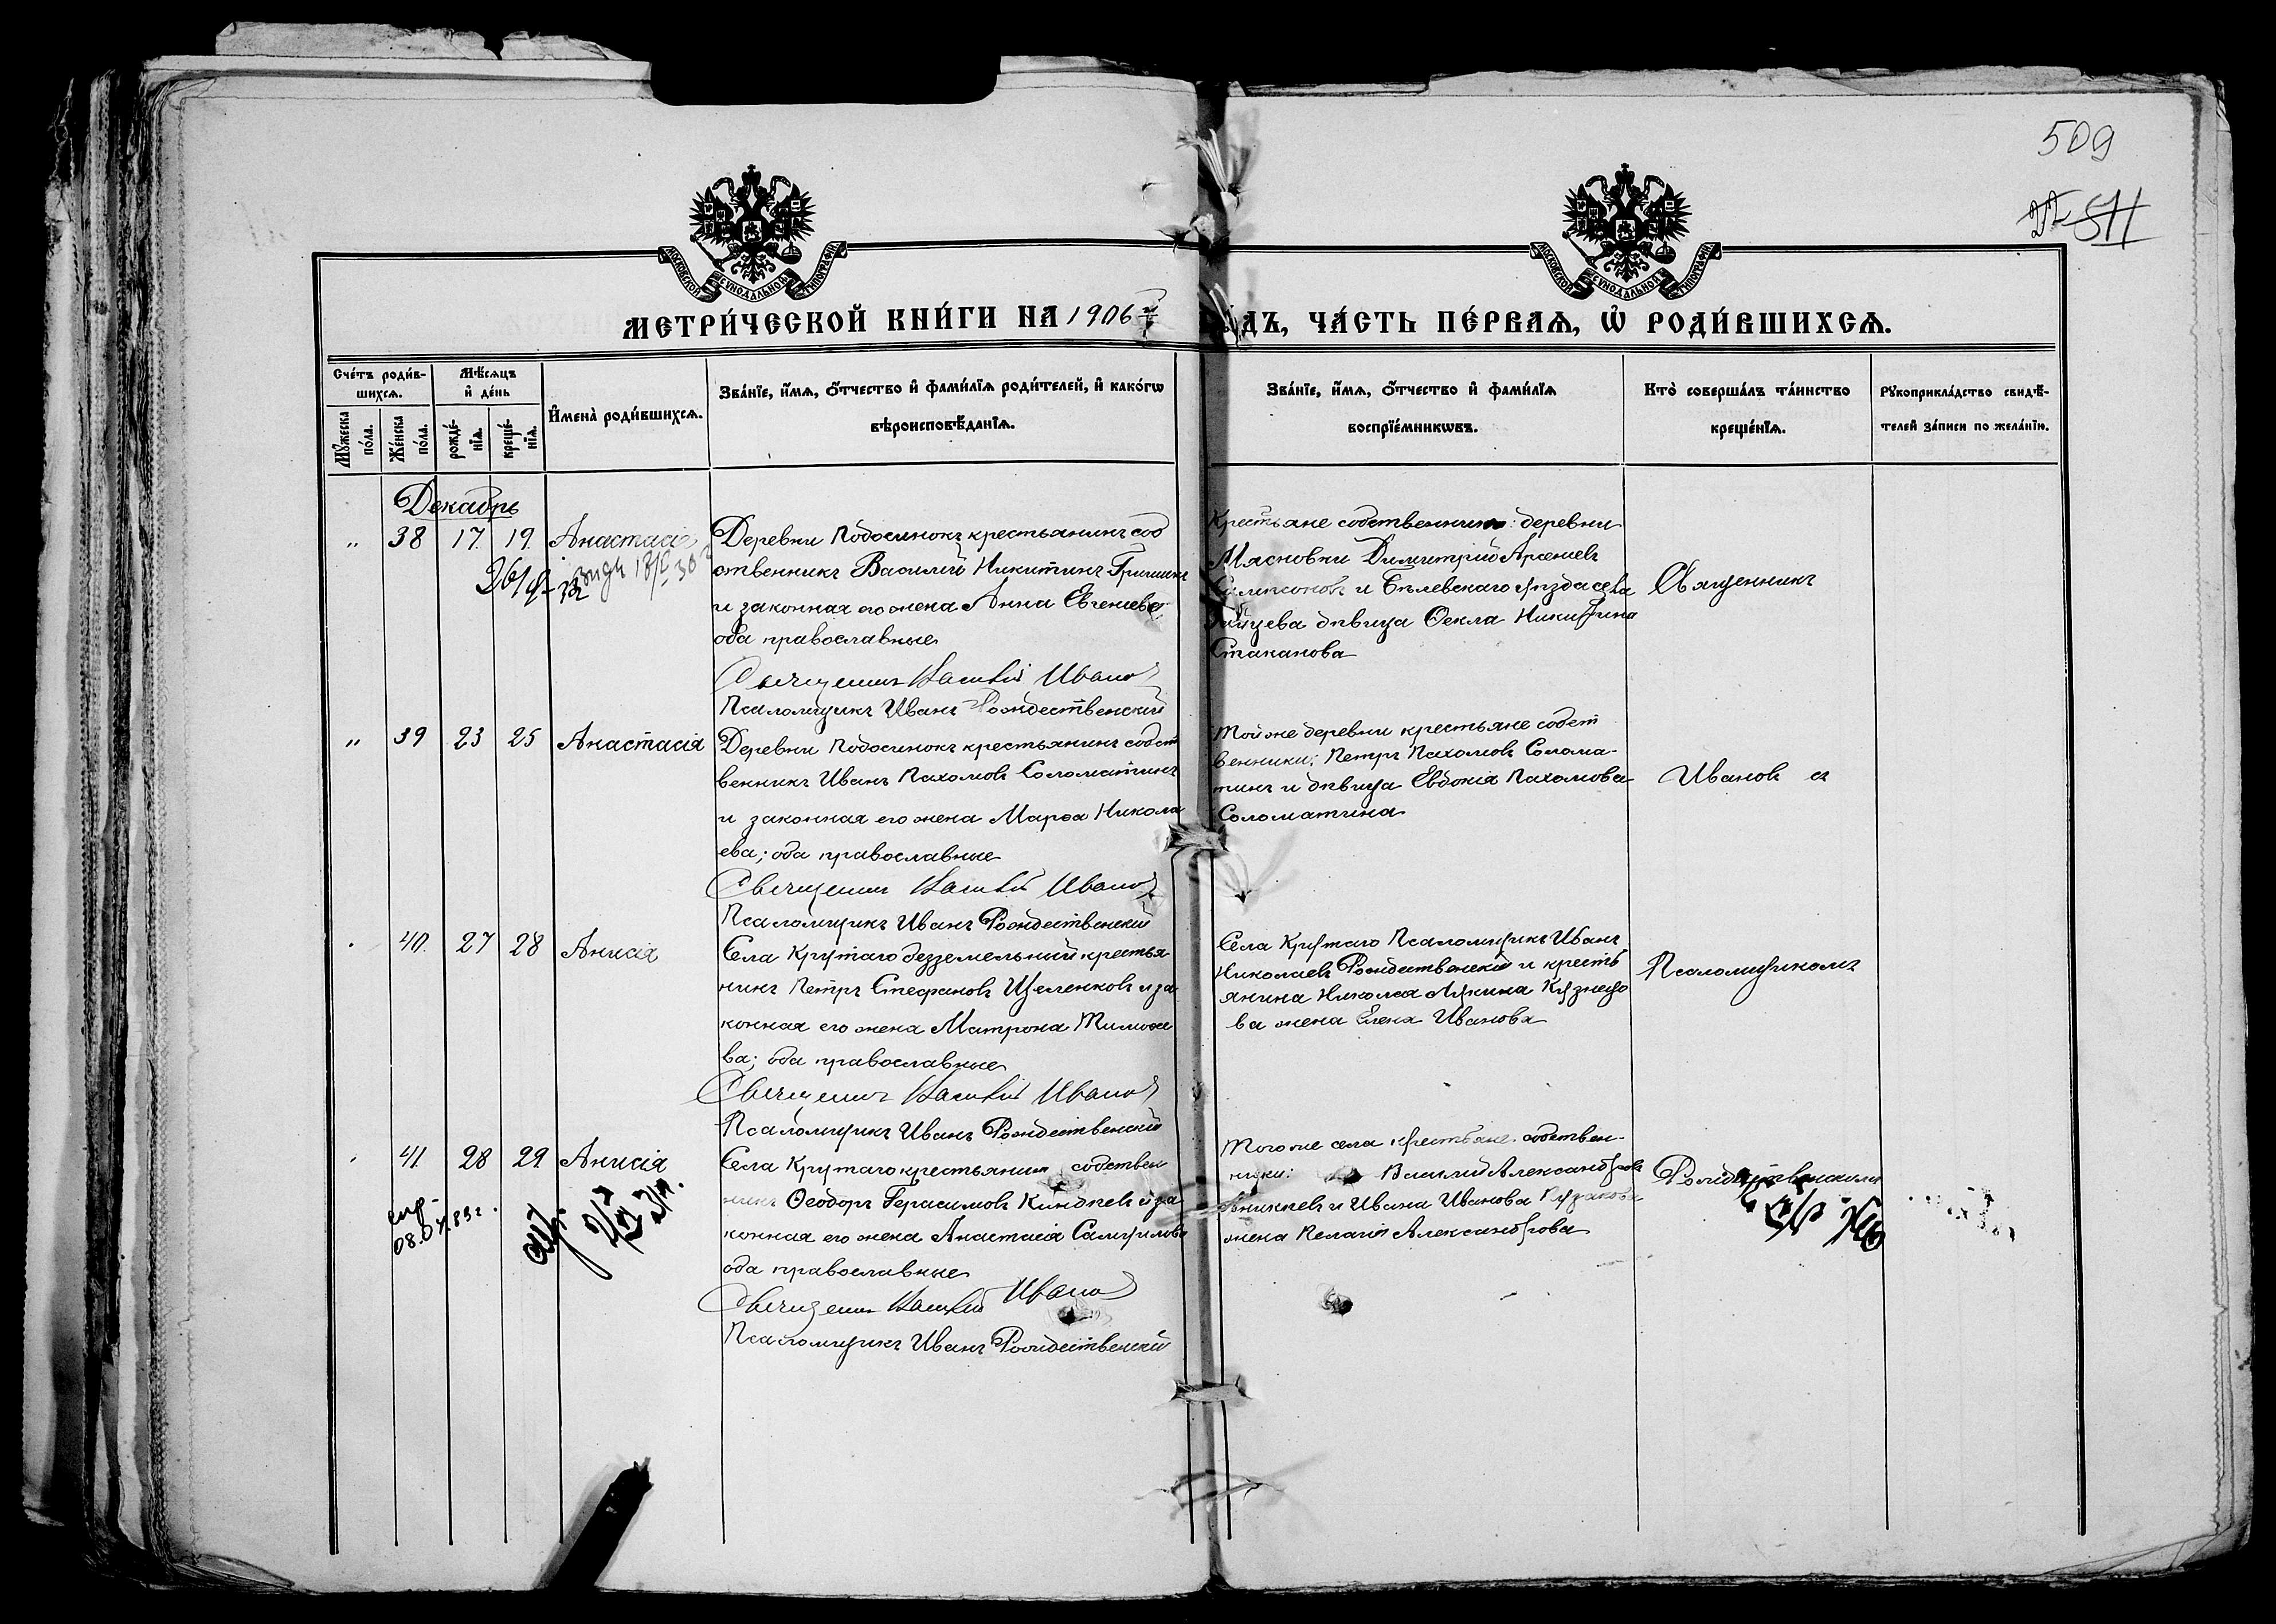 509
511
МОСКОВСКОЙ СѴНОДАЛЬНОЙ ТИПОГРАФІИ
МОСКОВСКОЙ СѴНОДАЛЬНОЙ ТИПОГРАФІИ
МЕТРИ́ЧЕСКОЙ КНИ́ГИ НА 1906 ДЪ, ЧА́СТЬ ПЕ́РВАѦ, Ѽ РОДИ́ВШИХСѦ.
Сче́тъ роди́в-
шихсѧ.
Мꙋ́жеска по́ла.
Же́нска по́ла.
Мѣ́сѧцъ
и҆ де́нь
рожде́-
нїѧ.
креще́-
нїѧ.
И҆мена̀ роди́вшихсѧ.
Зва́нїе, и҆́мѧ, ѻ҆́тчество и҆ фами́лїѧ роди́телей, и҆ како́гѡ
вѣроисповѣ́данїѧ.
Зва́нїе, и҆́мѧ, ѻ҆́тчество и҆ фами́лїѧ
воспрїе́мникѡвъ.
Кто̀ соверша́лъ та́инство
креще́нїѧ.
Рꙋкоприкла́дство свидѣ́-
телей за́писи по жела́нїю.
Декабрь
„ 38 17 19 Анастасія
Деревни Подосинокъ крестьянинъ соб
ственникъ Василій Никитинъ Гришинъ
и законная его жена Анна Евгениева
оба православные
Священникъ Василій Ивановъ
Псаломщикъ Иванъ Рождественскій
Крестьяне собственники: деревни
Мясновки Димитрій Арсеніевъ
и Бѣлевскаго уѣзда села
дѣвица Ѳекла Никитина
Стаканова
Священникъ
„ 39 23 25 Анастасія
Деревни Подосинокъ крестьянинъ собст
венникъ Иванъ Пахомовъ Соломатинъ
и законная его жена Марѳа Никола
ева; оба православные
Священникъ Василій Ивановъ
Псаломщикъ Иванъ Рождественскій
Той же деревни крестьяне собст
венники: Петръ Пахомовъ Солома-
тинъ и дѣвица Евдокія Пахомова
Соломатина
Ивановъ съ
40 27 28 Анисія
Села Крутаго безземельный крестья
нинъ Петръ Стефановъ Щеленковъ и за
конная его жена Матрона Тимоѳее
ва; оба православные
Священникъ Василій Ивановъ
Псаломщикъ Иванъ Рождественскій
Села Крутаго Псаломщикъ Иванъ
Николаевъ Рождественскій и кресть
янина Николая Лукина Кузнецо
ва жена Елена Иванова
Псаломщикомъ
41 28 29 Анисія
Села Крутаго крестьянинъ собствен
никъ Ѳеодоръ Герасимовъ Киндѣевъ и за
конная его жена Анастасія Самуилова
оба православные
Священникъ Василій Ивановъ
Псаломщикъ Иванъ Рождественскій
Того же села крестьяне собствен-
ники: Василій Александровъ
Аникѣевъ и Ивана Иванова
жена Пелагія Александрова
Рождественскимъ